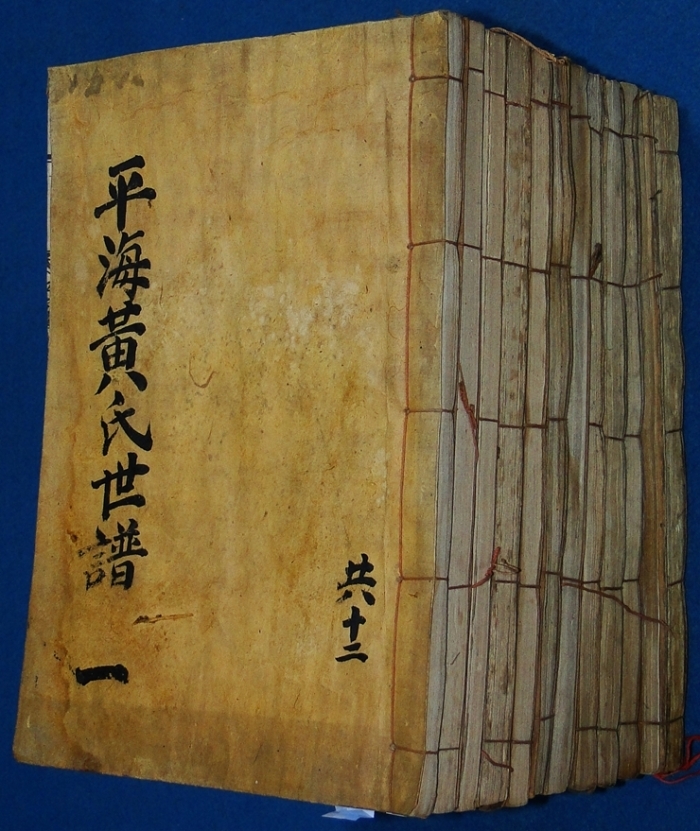 平海黃氏世譜 一
共十二